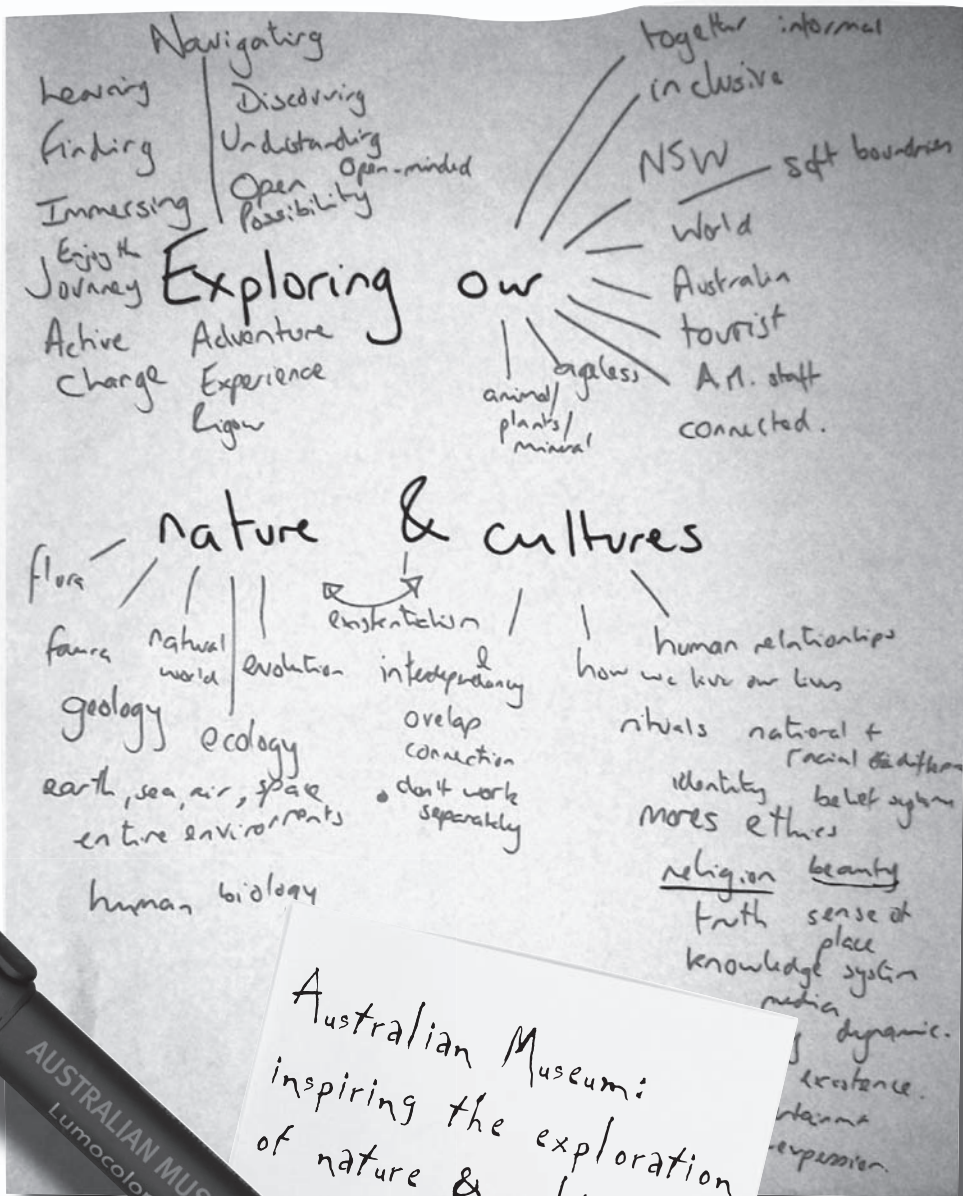 Navigating
Learning
Discovering
Finding
Understanding
Open-minded
Immersing
Open
Possibility
Enjoy the
Journey
Exploring our
Active
Adventure
Change
Experience
Rigour
together informal
inclusive
NSW
soft boundries
World
Australia
tourist
A.M. staff
connected.
ageless
animal/
plants/
mineral
nature & cultures
flora
fauna
natural
world
evolution
geology
ecology
earth, sea, air, space
entire environments
human biology
existentialism
&
interdependency
overlap
connection
• don't work
separately
human relationships
how we live our lives
rituals national +
racial
identity belief system
mores ethics
religion beauty
truth sense of
place
knowledge system
media
dynamic.
existence.
expression.
Australian Museum:
inspiring the exploration
of nature &
AUSTRALIAN MUS
Lumocolor